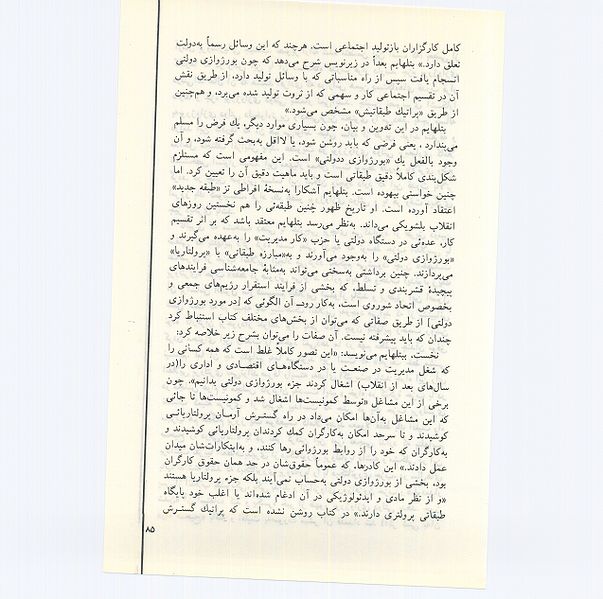 کامل کارگزاران بازتولید اجتماعی است. هرچند که این وسائل رسماً به‌دولت
تعلق دارد.» بتلهایم بعداً در زیرنویس شرح می‌دهد که چون بورژوازی دولتی
انسجام یافت سپس از راه مناسباتی که با وسائل تولید دارد، از طریق نقش
آن در تقسیم اجتماعی کار و سهمی که از ثروت تولید شده می‌برد، و هم‌چنین
از طریق «پراتیك طبقاتیش» مشخص می‌شود.»
بتلهایم در این تدوین و بیان، چون بسیاری موارد دیگر، یك فرض را مسلم
می‌پندارد . یعنی فرضی که باید روشن شود، یا لااقل به‌بحث گرفته شود، و آن
وجود بالفعل یك «بورژوازی ددولتی» است. این مفهومی است که مستلزم
شکل‌بندی کاملاً دقیق طبقاتی است و باید ماهیت دقیق آن را تعیین کرد. اما
چنین خواستی بیهوده است. بتلهایم آشکارا به‌نسخهٔ افراطی تز «طبقه جدید»
اعتقاد آورده است. او تاریخ ظهور چنین طبقه‌ئی را هم نخستین روزهای
انقلاب بلشویکی می‌داند. به‌نظر می‌رسد بتلهایم معتقد باشد که بر اثر تقسیم
کار، عده‌ئی در دستگاه دولتی یا حزب «کار مدیریت» را به‌عهده می‌گیرند و
«بورژوازی دولتی» را به‌وجود می‌آورند و به‌«مبارزه طبقاتی» با «پرولتاریا»
می‌پردازند. چنین برداشتی به‌سختی می‌تواند به‌مثابهٔ جامعه‌شناسی فرایندهای
پیچیدهٔ قشربندی و تسلط، که بخشی از فرایند استقرار رژیم‌های جمعی و
بخصوص اتحاد شوروی است، به‌کار رود. آن الگوئی که [در مورد بورژوازی
دولتی] از طریق صفاتی که می‌توان از بخش‌های مختلف کتاب استنباط کرد
چندان که باید پیشرفته نیست. آن صفات را می‌توان بشرح زیر خلاصه کرد:
نخست، بیتلهایم می‌نویسد: «این تصور کاملاً غلط است که همه کسانی را
که شغل مدیریت در صنعت یا در دستگاه‌های اقتصادی و اداری را(در
سال‌های بعد از انقلاب) اشغال کردند جزء بورژوازی دولتی بدانیم». چون
برخی از این مشاغل «توسط کمونیست‌ها اشغال شد و کمونیست‌ها تا جائی
که این مشاغل به‌آن‌ها امکان می‌داد در راه گسترش آرمان پرولتاریائی
کوشیدند و تا سرحد امکان به‌کارگران کمك کردندان پرولتاریائی کوشیدند و
به‌کارگران که خود را از روابط بورژوائی رها کنند، و به‌ابتکارات‌شان میدان
عمل دادند.» این کادرها، که عموماً حقوق‌شان در حد همان حقوق کارگران
بود، بخشی از بورژوازی دولتی به‌حساب نمی‌آیند بلکه جزء پرولتاریا هستند
«و از نظر مادی و ایدئولوژیکی در آن ادغام شده‌اند یا اغلب خود پایگاه
طبقاتی پرولتری دارند.» در کتاب روشن نشده است که پراتیك گسترش
۸۵